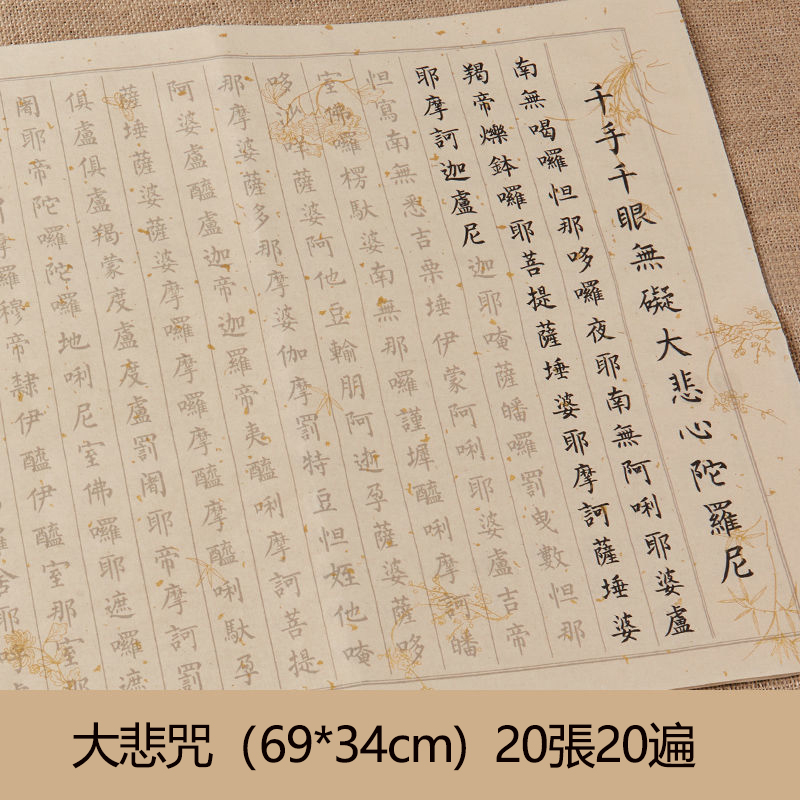 千手千眼無礙大悲心陀羅尼
南無喝囉怛那哆囉夜耶南無阿唎耶婆盧
羯帝爍鉢囉耶菩提薩埵婆耶摩訶薩埵婆
耶摩訶迦盧尼迦耶唵薩皤囉罰曳數怛那
怛寫南無悉吉栗埵伊蒙阿唎耶婆盧吉帝
室佛囉楞馱婆南無那囉謹墀醯唎摩訶皤
哆沙咩薩婆阿他豆輸朋阿逝孕薩婆薩哆
那摩婆薩多那摩婆伽摩罰特豆怛姪他唵
阿婆盧醯盧迦帝迦羅帝夷醯唎摩訶菩提
薩埵薩婆薩婆摩囉摩囉摩醯摩醯唎馱孕
俱盧俱盧羯蒙度盧度盧罰闍耶帝摩訶罰
闍耶帝陀囉陀囉地唎尼室佛囉耶遮囉遮
摩羅穆帝隸伊醯伊醯室那室
舍耶
大悲咒（69*34cm）20張20遍